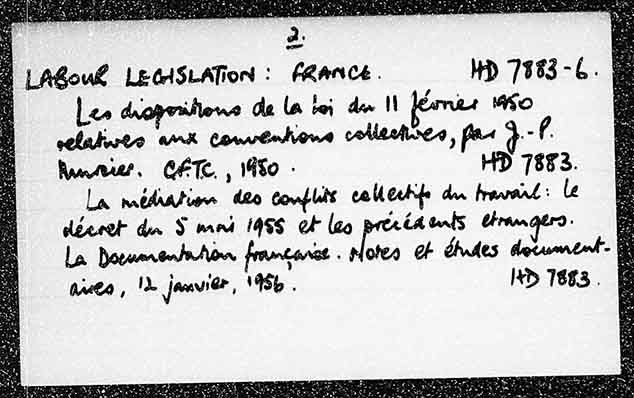 2.
LABOUR LEGISLATION: FRANCE. HD 7883-6.
Les dispositions de la loi du 11 février 1950
relatives aux conventions collectives, par J.-P.
C.F.T.C., 1950. HD 7883.
La médiation des conflits collectifs du travail: le
décret du 5 mai 1955 et les précédents etrangers.
La Documentation française. Notes et études document-
aires, 12 janvier, 1956. HD 7883.